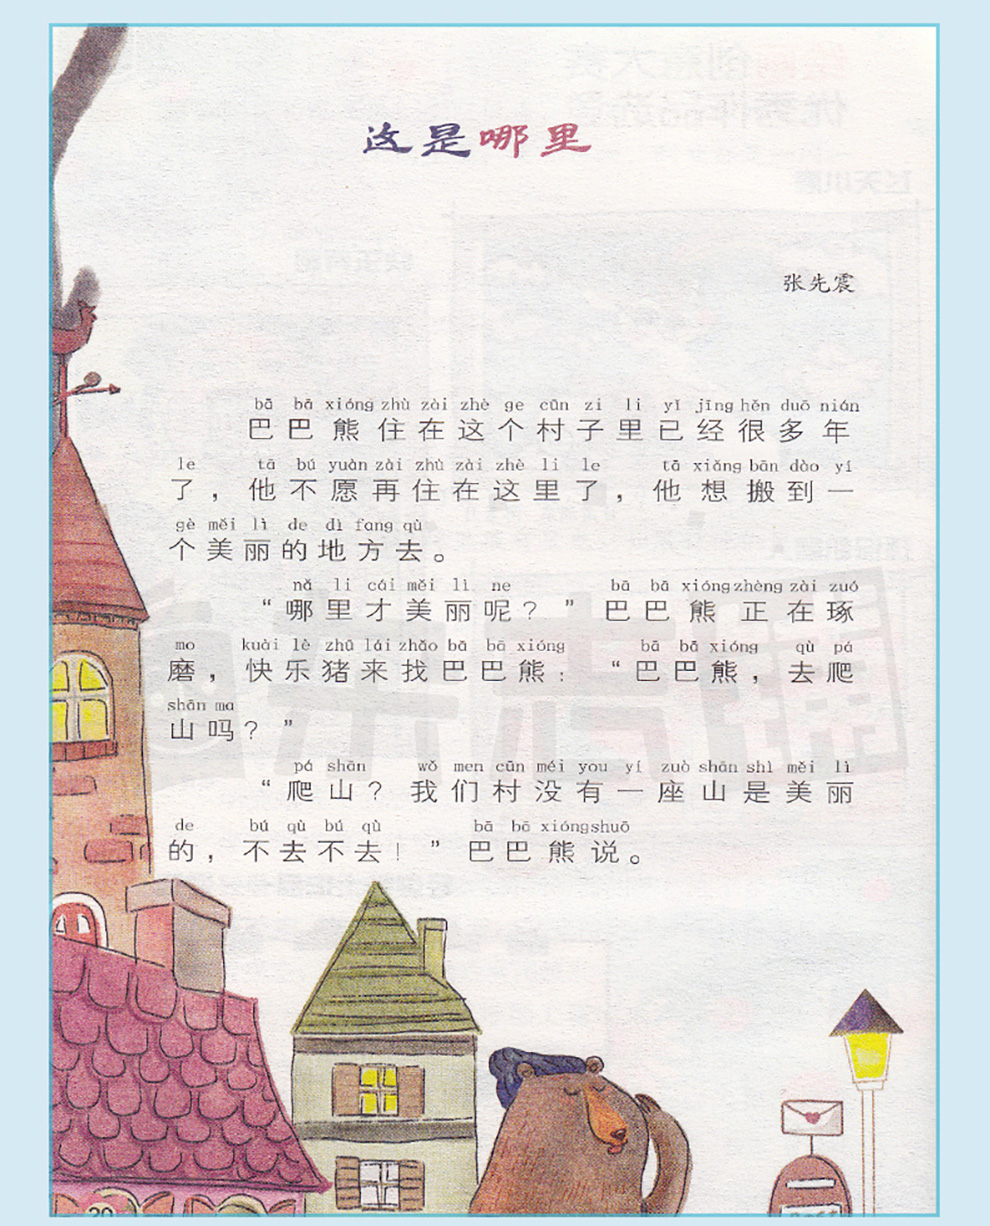 这是哪里
张先震
bā bā xióng zhù zài zhè ge cūn zi li yǐ jīng hěn duō nián
巴巴熊住在这个村子里已经很多年
le tā bú yuàn zài zhù zài zhè li le tā xiǎng bān dào yí
了，他不愿再住在这里了，他想搬到一
gè měi lì de dì fang qù
个美丽的地方去。
nǎ li cái měi lì ne bā bā xióng zhèng zài zuó
“哪里才美丽呢？”巴巴熊正在琢
mo kuài lè zhū lái zhǎo bā bā xióng bā bā xióng qù pá
磨，快乐猪来找巴巴熊：“巴巴熊，去爬
shān ma
山吗？”
pá shān wǒ men cūn méi you yí zuò shān shì měi lì
“爬山？我们村没有一座山是美丽
de bú qù bú qù bā bā xióng shuō
的，不去不去！”巴巴熊说。
20